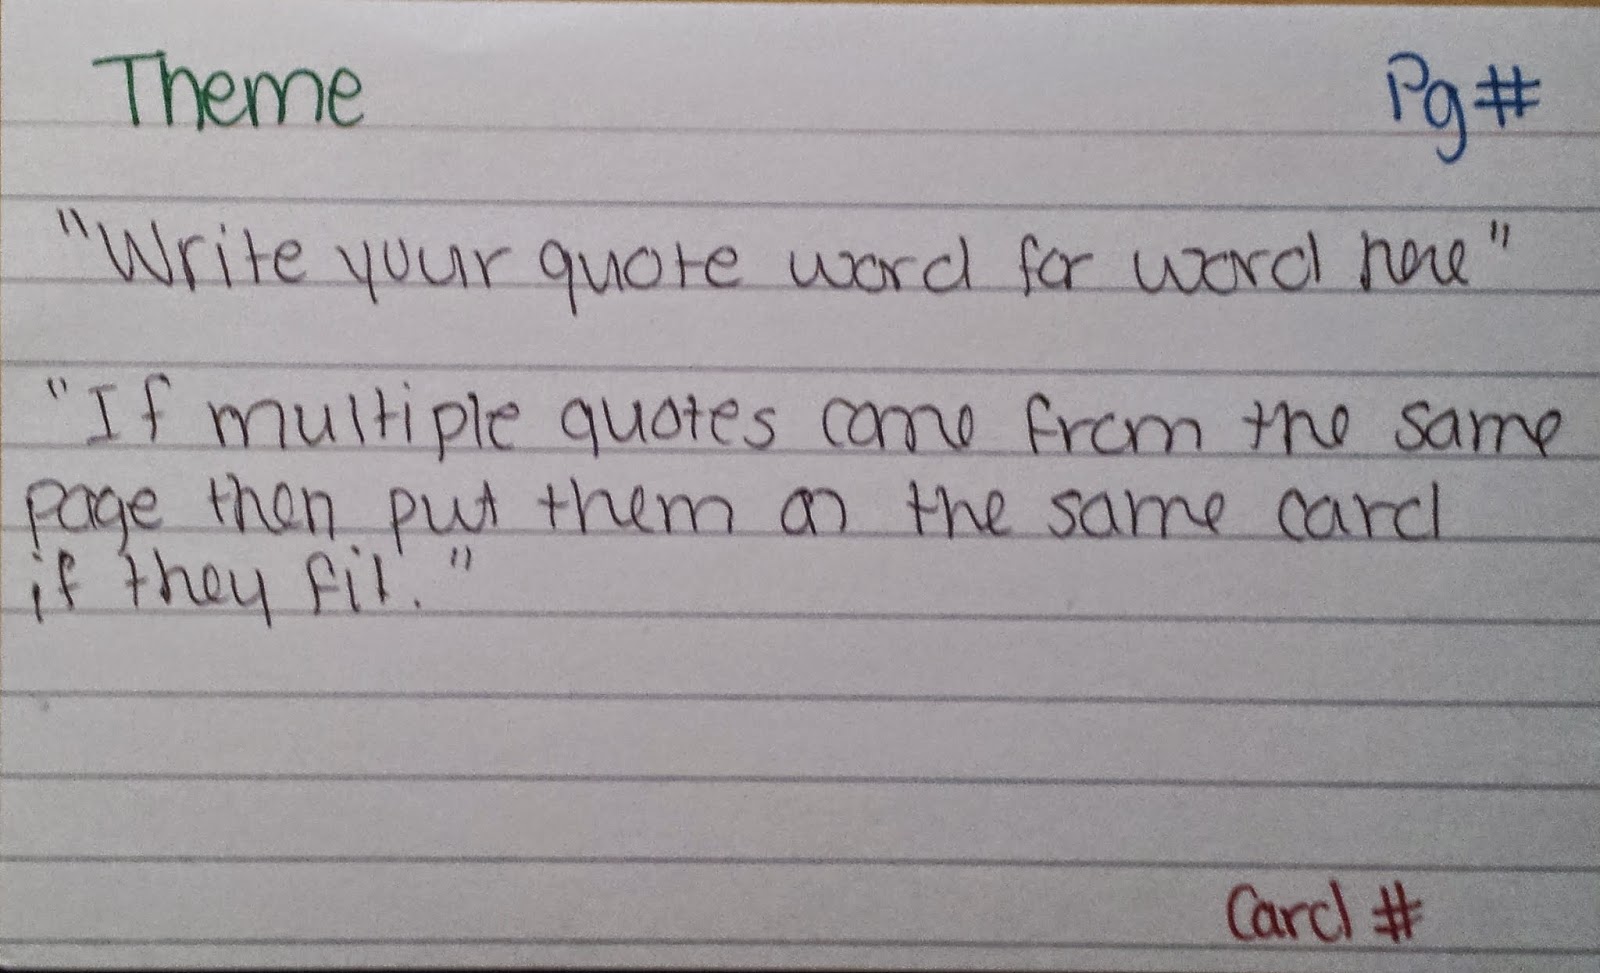 Theme Pg #
"Write your quote word for word here"
"If multiple quotes come from the same
page then put them on the same card
if they fit."
Card #